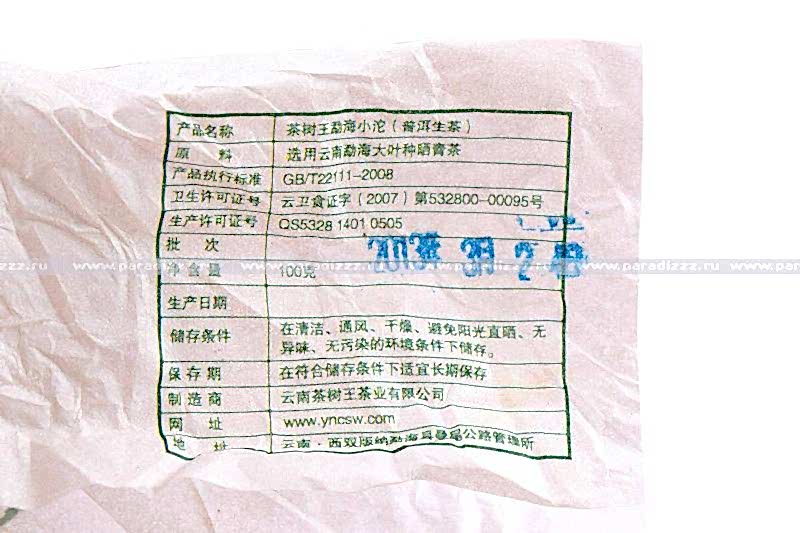 产品名称 茶树王勐海小沱（普洱生茶）
原 料 选用云南勐海大叶种晒青茶
产品执行标准 GB/T22111-2008
卫生许可证号 云卫食证字（2007）第532800-00095号
生产许可证号 QS5328 1401 0505
批 次
净含量 100克
生产日期
储存条件 在清洁、通风、干燥、避免阳光直晒、无
异味、无污染的环境条件下储存。
保存期 在符合储存条件下适宜长期保存
制造商 云南茶树王茶业有限公司
网 址 www.yncsw.com
地 址 云南·西双版纳勐海县曼尾公路管理所
www.paradizzz.ru @ www.paradizzz.ru @ www.paradizzz.ru